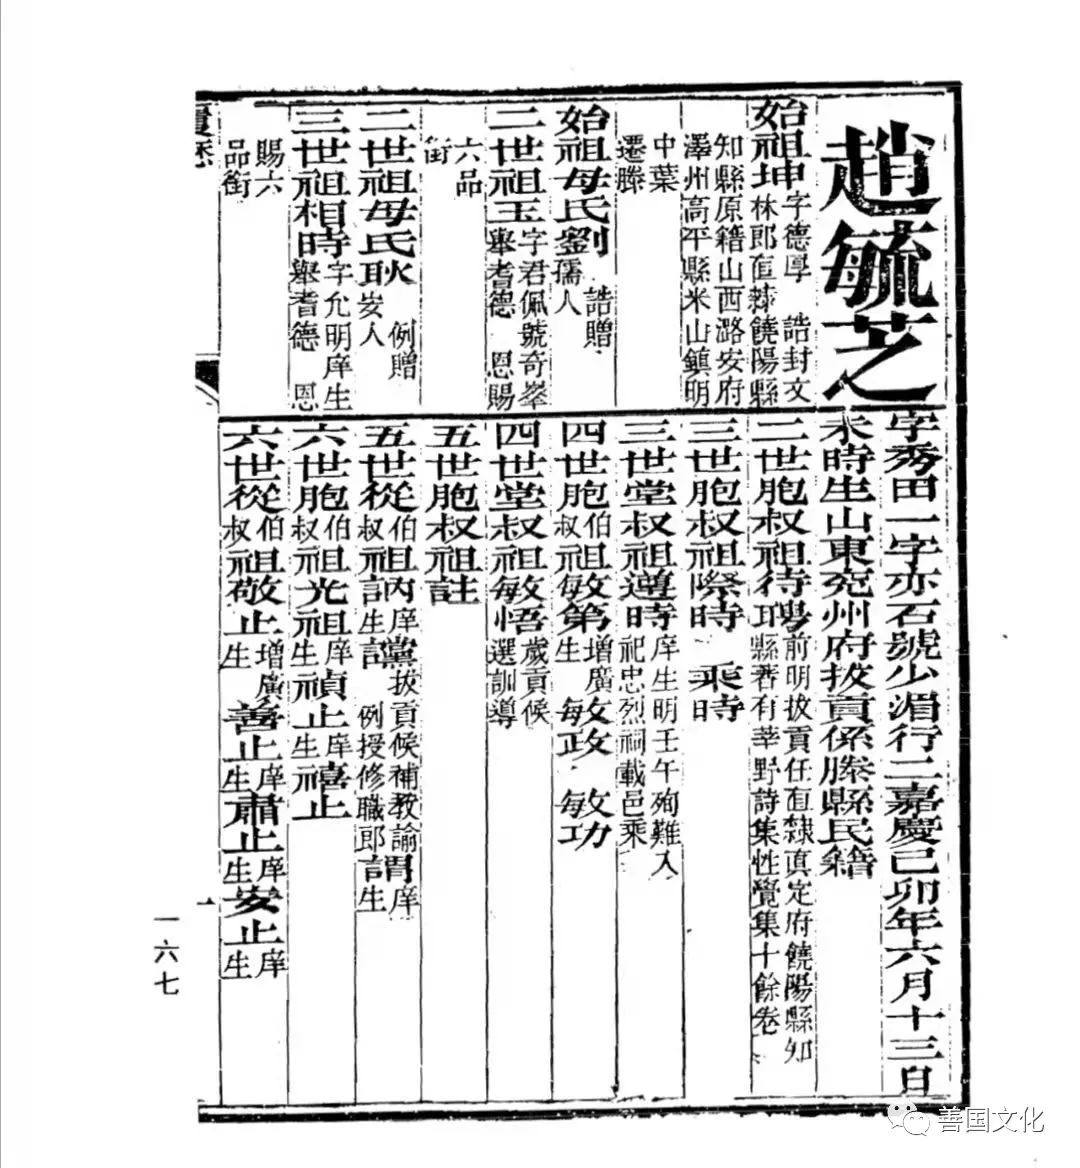 趙毓芝
字秀田一字亦石號少湄行二嘉慶己卯年六月十三日
未時生山東兗州府拔貢係滕縣民籍
始祖坤字德厚 誥封文
林郎直隸饒陽縣
知縣原籍山西潞安府
澤州高平縣米山鎮明
中葉
遷滕
始祖母氏劉 誥贈
孺人
二世祖玉字君佩號奇峯
舉耆德 恩賜
六品
銜
二世祖母氏耿 例贈
安人
三世祖相時字允明庠生
舉耆德 恩
賜六
品銜
二世胞叔祖待聘前明拔貢任直隸真定府饒陽縣知
縣著有莘野詩集性覽集十餘卷
三世胞叔祖際時 乘時
三世堂叔祖遵時庠生明壬午殉難入
祀忠烈祠載邑乘
四世胞伯叔祖敏第增廣生 敏政 敏功
四世堂叔祖敏悟歲貢候
選訓導
五世胞叔祖註
五世從伯叔祖訥庠生 讜拔貢候補教諭
例授修職郎 謂庠生
六世胞伯叔祖光祖庠生 禎止庠生 禧止
六世從伯叔祖敬止增廣生 善止庠生 肅止庠生 安止庠生
一
一六七
善国文化